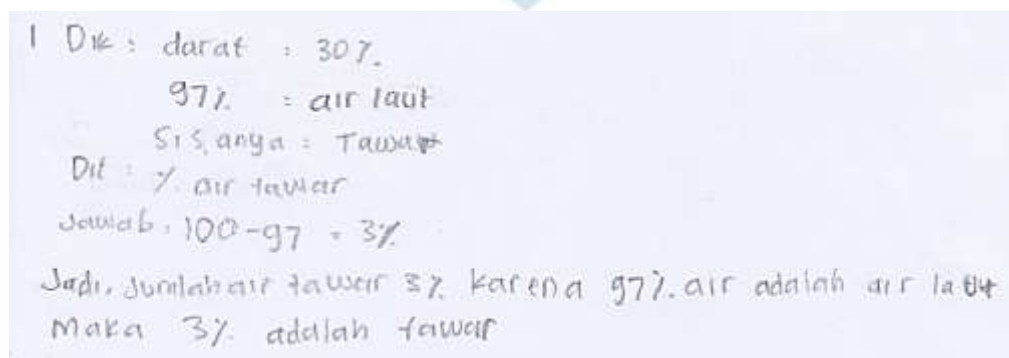 1 Dik : darat : 30%.
97% = air laut
Sisanya : Tawar
Dit : % air tawar
Jawab : 100-97 = 3%
Jadi, Jumlah air tawar 3% karena 97% air adalah air laut
Maka 3% adalah tawar